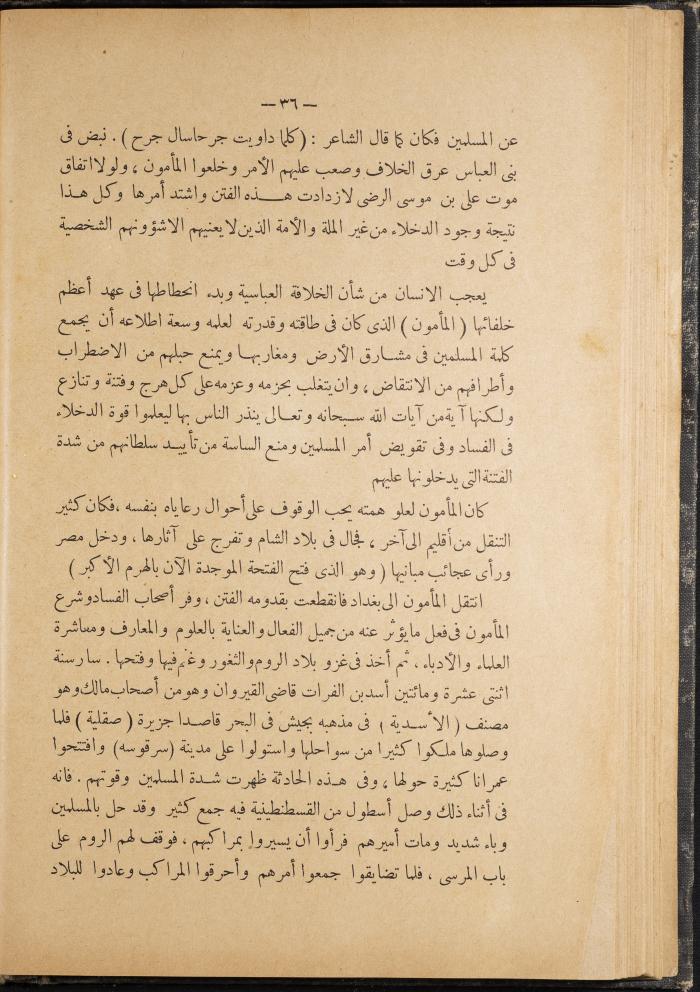 — ٣٦ —
عن المسلمين فكان كما قال الشاعر : (كلما داويت جرحاسال جرح) . نبض فى
بنى العباس عرق الخلاف وصعب عليهم الأمر وخلعوا المأمون ، ولولا اتفاق
موت على بن موسى الرضى لازدادت هـذه الفتن واشتد أمرها وكل هذا
نتيجة وجود الدخلاء من غير الملة والأمة الذين لا يعنيهم الاشؤونهم الشخصية
فى كل وقت
يعجب الانسان من شأن الخلافة العباسية وبدء انحطاطها فى عهد أعظم
خلفائها (المأمون) الذى كان فى طاقته وقدرته لعلمه وسعة اطلاعه أن يجمع
كلمة المسلمين فى مشارق الأرض ومغاربها ويمنع حبلهم من الاضطراب
وأطرافهم من الانتقاض ، وان يتغلب بحزمه وعزمه على كل هرج وفتنة وتنازع
ولكنها آية من آيات الله سبحانه وتعالى ينذر الناس بها ليعلموا قوة الدخلاء
فى الفساد وفى تقويض أمر المسلمين ومنع الساسة من تأييد سلطانهم من شدة
الفتنة التى يدخلونها عليهم
كان المأمون لعلو همته يحب الوقوف على أحوال رعاياه بنفسه ، فكان كثير
التنقل من أقليم الى آخر ، فجال فى بلاد الشام وتفرج على آثارها ، ودخل مصر
ورأى عجائب مبانيها (وهو الذى فتح الفتحة الموجدة الآن بالهرم الأكبر)
انتقل المأمون الى بغداد فانقطعت بقدومه الفتن ، وفر أصحاب الفساد وشرع
المأمون فى فعل ما يؤثر عنه من جميل الفعال والعناية بالعلوم والمعارف ومعاشرة
العلماء والأدباء ، ثم أخذ فى غزو بلاد الروم والثغور وغنم فيها وفتحها . سار سنة
اثنتى عشرة ومائتين أسد بن الفرات قاضى القيروان وهو من أصحاب مالك وهو
مصنف (الأسدية) فى مذهبه بجيش فى البحر قاصدا جزيرة (صقلية) فلما
وصلوها ملكوا كثيرا من سواحلها واستولوا على مدينة (سرقوسه) وافتتحوا
عمرانا كثيرة حولها ، وفى هـذه الحادثة ظهرت شدة المسلمين وقوتهم . فانه
فى أثناء ذلك وصل أسطول من القسطنطينية فيه جمع كثير وقد حل بالمسلمين
وباء شديد ومات أميرهم فرأوا أن يسيروا بمراكبهم ، فوقف لهم الروم على
باب المرسى ، فلما تضايقوا جمعوا أمرهم وأحرقوا المراكب وعادوا للبلاد